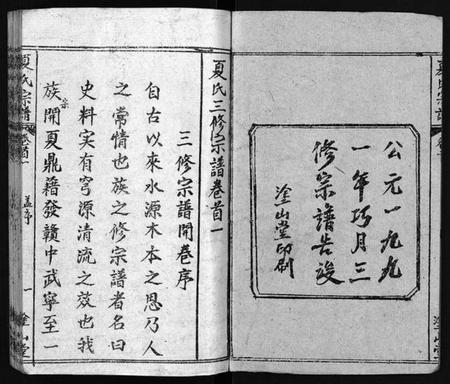 公元一九九
一年巧月三
修宗譜告竣
塗山堂印刷
夏氏三修宗譜卷首一
三修宗譜開卷序
自古以來水源木本之思乃人
之常情也族之修宗譜者名曰
史料实有穷源清流之效也我
族宗開夏鼎藉發贛中武寧至一
夏氏宗譜
卷首一
盖序
一
塗山堂